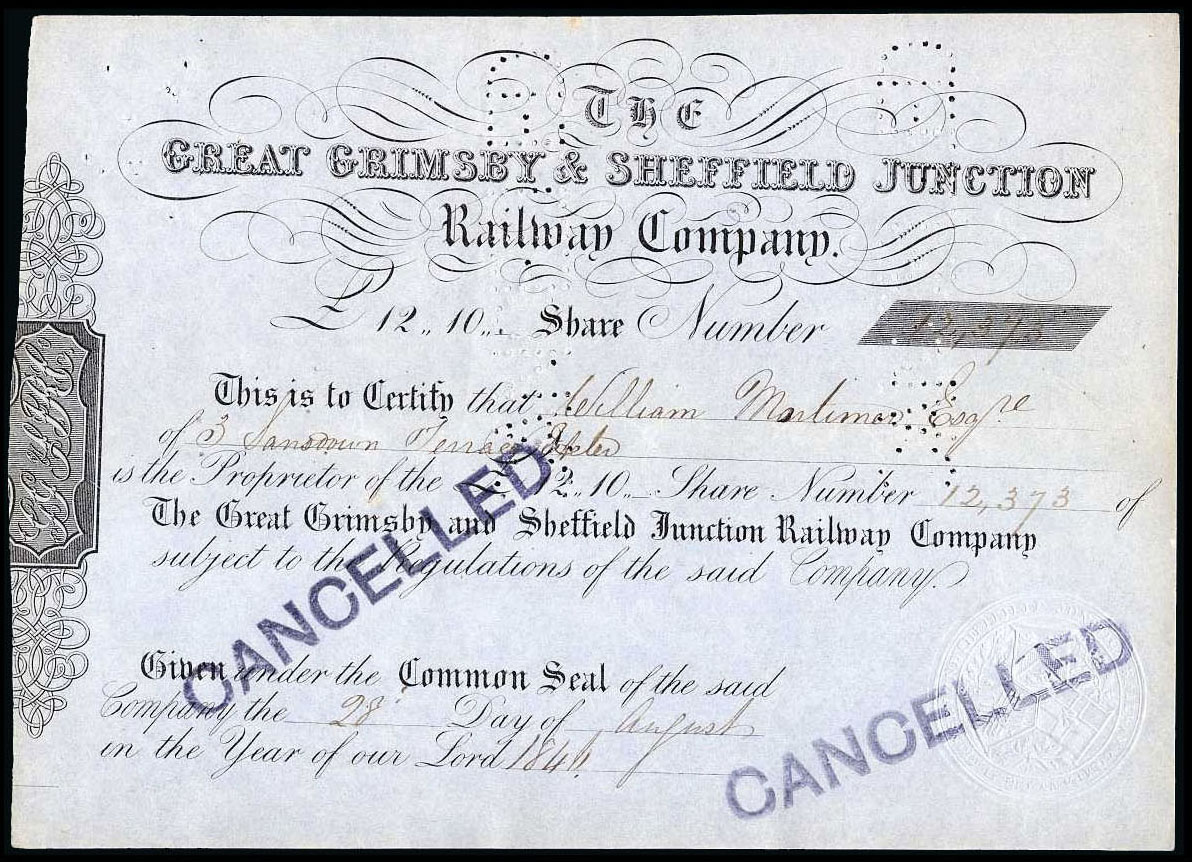 THE
GREAT GRIMSBY & SHEFFIELD JUNCTION
Railway Company.
£12,,10,,_ Share Number 12,373
This is to Certify that William Mortimer Esqre
of 3 Lansdown Terrace Exeter
is the Proprietor of the £12,,10,,_ Share Number 12,373 of
The Great Grimsby and Sheffield Junction Railway Company
subject to the Regulations of the said Company.
Given under the Common Seal of the said
Company the 28 Day of August
in the Year of our Lord 1846.
CANCELLED
CANCELLED